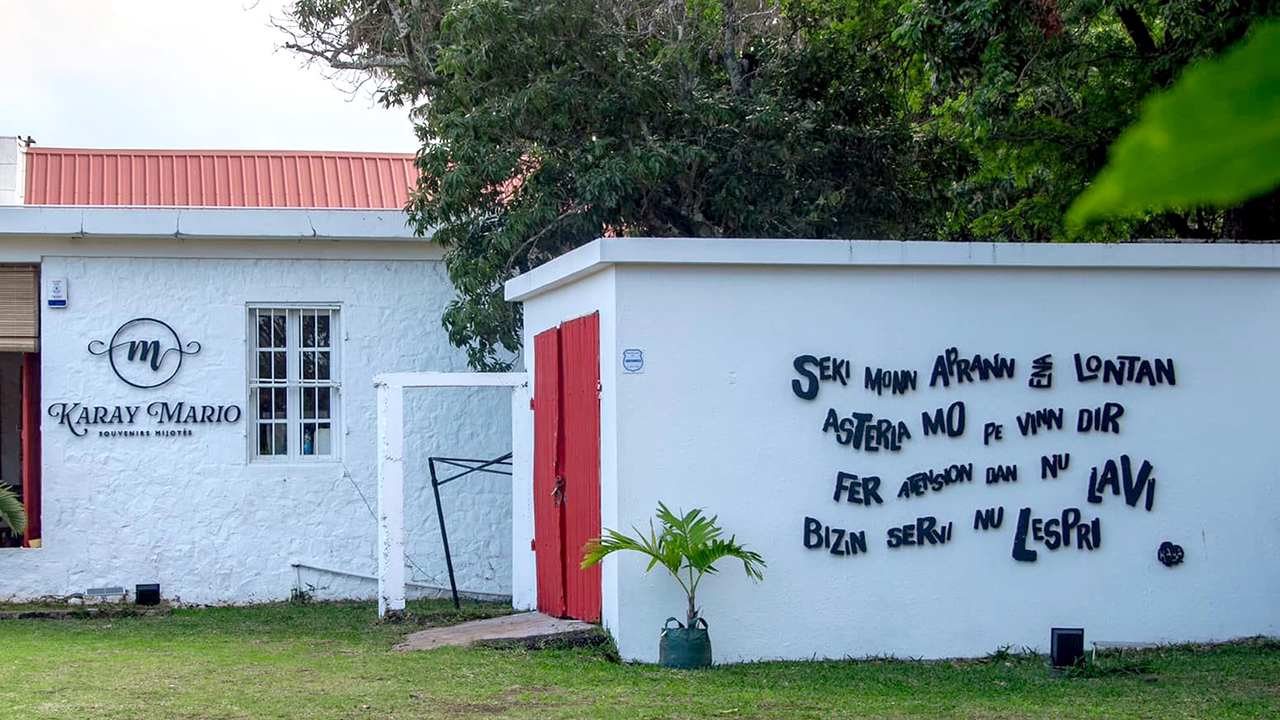 m
KARAY MARIO
SOUVENIRS MIJOTÉS
SEKI MONN APRANN ENN LONTAN
ASTERLA MO PE VINN DIR
FER ATENSION DAN NU LAVI
BIZIN SERVI NU LESPRI